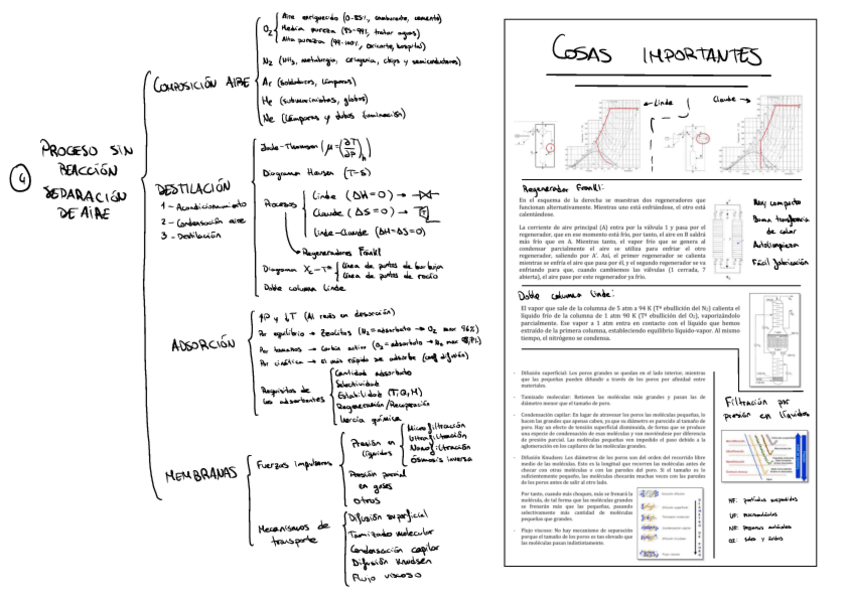 4
PROCESO SIN
REACCIÓN
SEPARACIÓN
DE AIRE
COMPOSICIÓN AIRE
O2
Aire enriquecido (0-85%, combustión, cemento)
Media pureza (85-99%, tratar aguas)
Alta pureza (99-100%, oxicorte, hospital)
N2 (NH3, metalurgia, criogenia, chips y semiconductores)
Ar (soldaduras, lámparas)
He (submarinistas, globos)
Ne (lámparas y tubos iluminación)
DESTILACIÓN
1 - Acondicionamiento
2 - Condensación aire
3 - Destilación
Joule-Thomson (μ = (∂T/∂P)h)
Diagrama Hausen (T-S)
Procesos
Linde (ΔH=0) →
Claude (ΔS=0) →
Linde-Claude (ΔH=ΔS=0)
Regeneradores Fränkl
Línea de puntos de burbuja
Línea de puntos de rocío
Doble columna Linde
ADSORCIÓN
↑P y ↓T (Al revés en desorción)
Por equilibrio → Zeolitas (N2 = adsorbato → O2 max 96%)
Requisitos de
los adsorbentes
Cantidad adsorbato
Selectividad
Estabilidad (T, Q, M)
Regeneración/Recuperación
Inercia química
MEMBRANAS
Fuerzas impulsoras
Presión en
líquidos
Microfiltración
Ultrafiltración
Nanofiltración
Ósmosis inversa
Presión parcial
en gases
Otros
Mecanismos de
transporte
Difusión superficial
Tamizado molecular
Condensación capilar
Difusión Knudsen
Flujo viscoso
COSAS IMPORTANTES
← Linde
Claude →
Regenerador Fränkl:
En el esquema de la derecha se muestran dos regeneradores que
funcionan alternativamente. Mientras uno está enfriándose, el otro está
calentándose.
La corriente de aire principal (A) entra por la válvula 1 y pasa por el
regenerador, que en ese momento está frío, por tanto, el aire en B saldrá
más frío que en A. Mientras tanto, el vapor frío que se genera al
condensar parcialmente el aire se utiliza para enfriar el otro
regenerador, saliendo por A'. Así, el primer regenerador se calienta
mientras se enfría el aire que pasa por él, y el segundo regenerador se va
enfriando para que, cuando cambiemos las válvulas (1 cerrada, 7
abierta), el aire pase por este regenerador ya frío.
Muy compacto
Buena transferencia
de calor
Autolimpieza
Fácil fabricación
Doble columna Linde:
El vapor que sale de la columna de 5 atm a 94 K (Tª ebullición del N2) calienta el
líquido frío de la columna de 1 atm 90 K (Tª ebullición del O2), vaporizándolo
parcialmente. Ese vapor a 1 atm entra en contacto con el líquido que hemos
extraído de la primera columna, estableciendo equilibrio líquido-vapor. Al mismo
tiempo, el nitrógeno se condensa.
- Difusión superficial: Los poros grandes se quedan en el lado interior, mientras
que las pequeñas pueden difundir a través de los poros por afinidad entre
materiales
- Tamizado molecular: Retienen las moléculas más grandes y pasan las de
diámetro menor que el tamaño de poro.
- Condensación capilar: En lugar de atravesar los poros las moléculas pequeñas, lo
hacen las grandes que apenas caben, ya que su diámetro es parecido al tamaño de
poro. Hay un efecto de tensión superficial disminuida, de forma que se produce
una especie de condensación de esas moléculas y van moviéndose por diferencia
de presión parcial. Las moléculas pequeñas ven impedido el paso debido a la
aglomeración en los capilares de las moléculas grandes.
- Difusión Knudsen: Los diámetros de los poros son del orden del recorrido libre
medio de las moléculas. Esto es la longitud que recorren las moléculas antes de
chocar con otras moléculas o con las paredes del poro. Si el tamaño es lo
suficientemente pequeño, las moléculas chocarán muchas veces con las paredes
de los poros antes de salir al otro lado.
Por tanto, cuando más choques, más se frenará la
molécula, de tal forma que las moléculas grandes
se frenarán más que las pequeñas, pasando
selectivamente más cantidad de moléculas
pequeñas que grandes.
- Flujo viscoso: No hay mecanismo de separación
porque el tamaño de los poros es tan elevado que
las moléculas pasan indistintamente.
Filtración por
presión en líquidos
MF: partículas suspendidas
OI: sales y ácidos